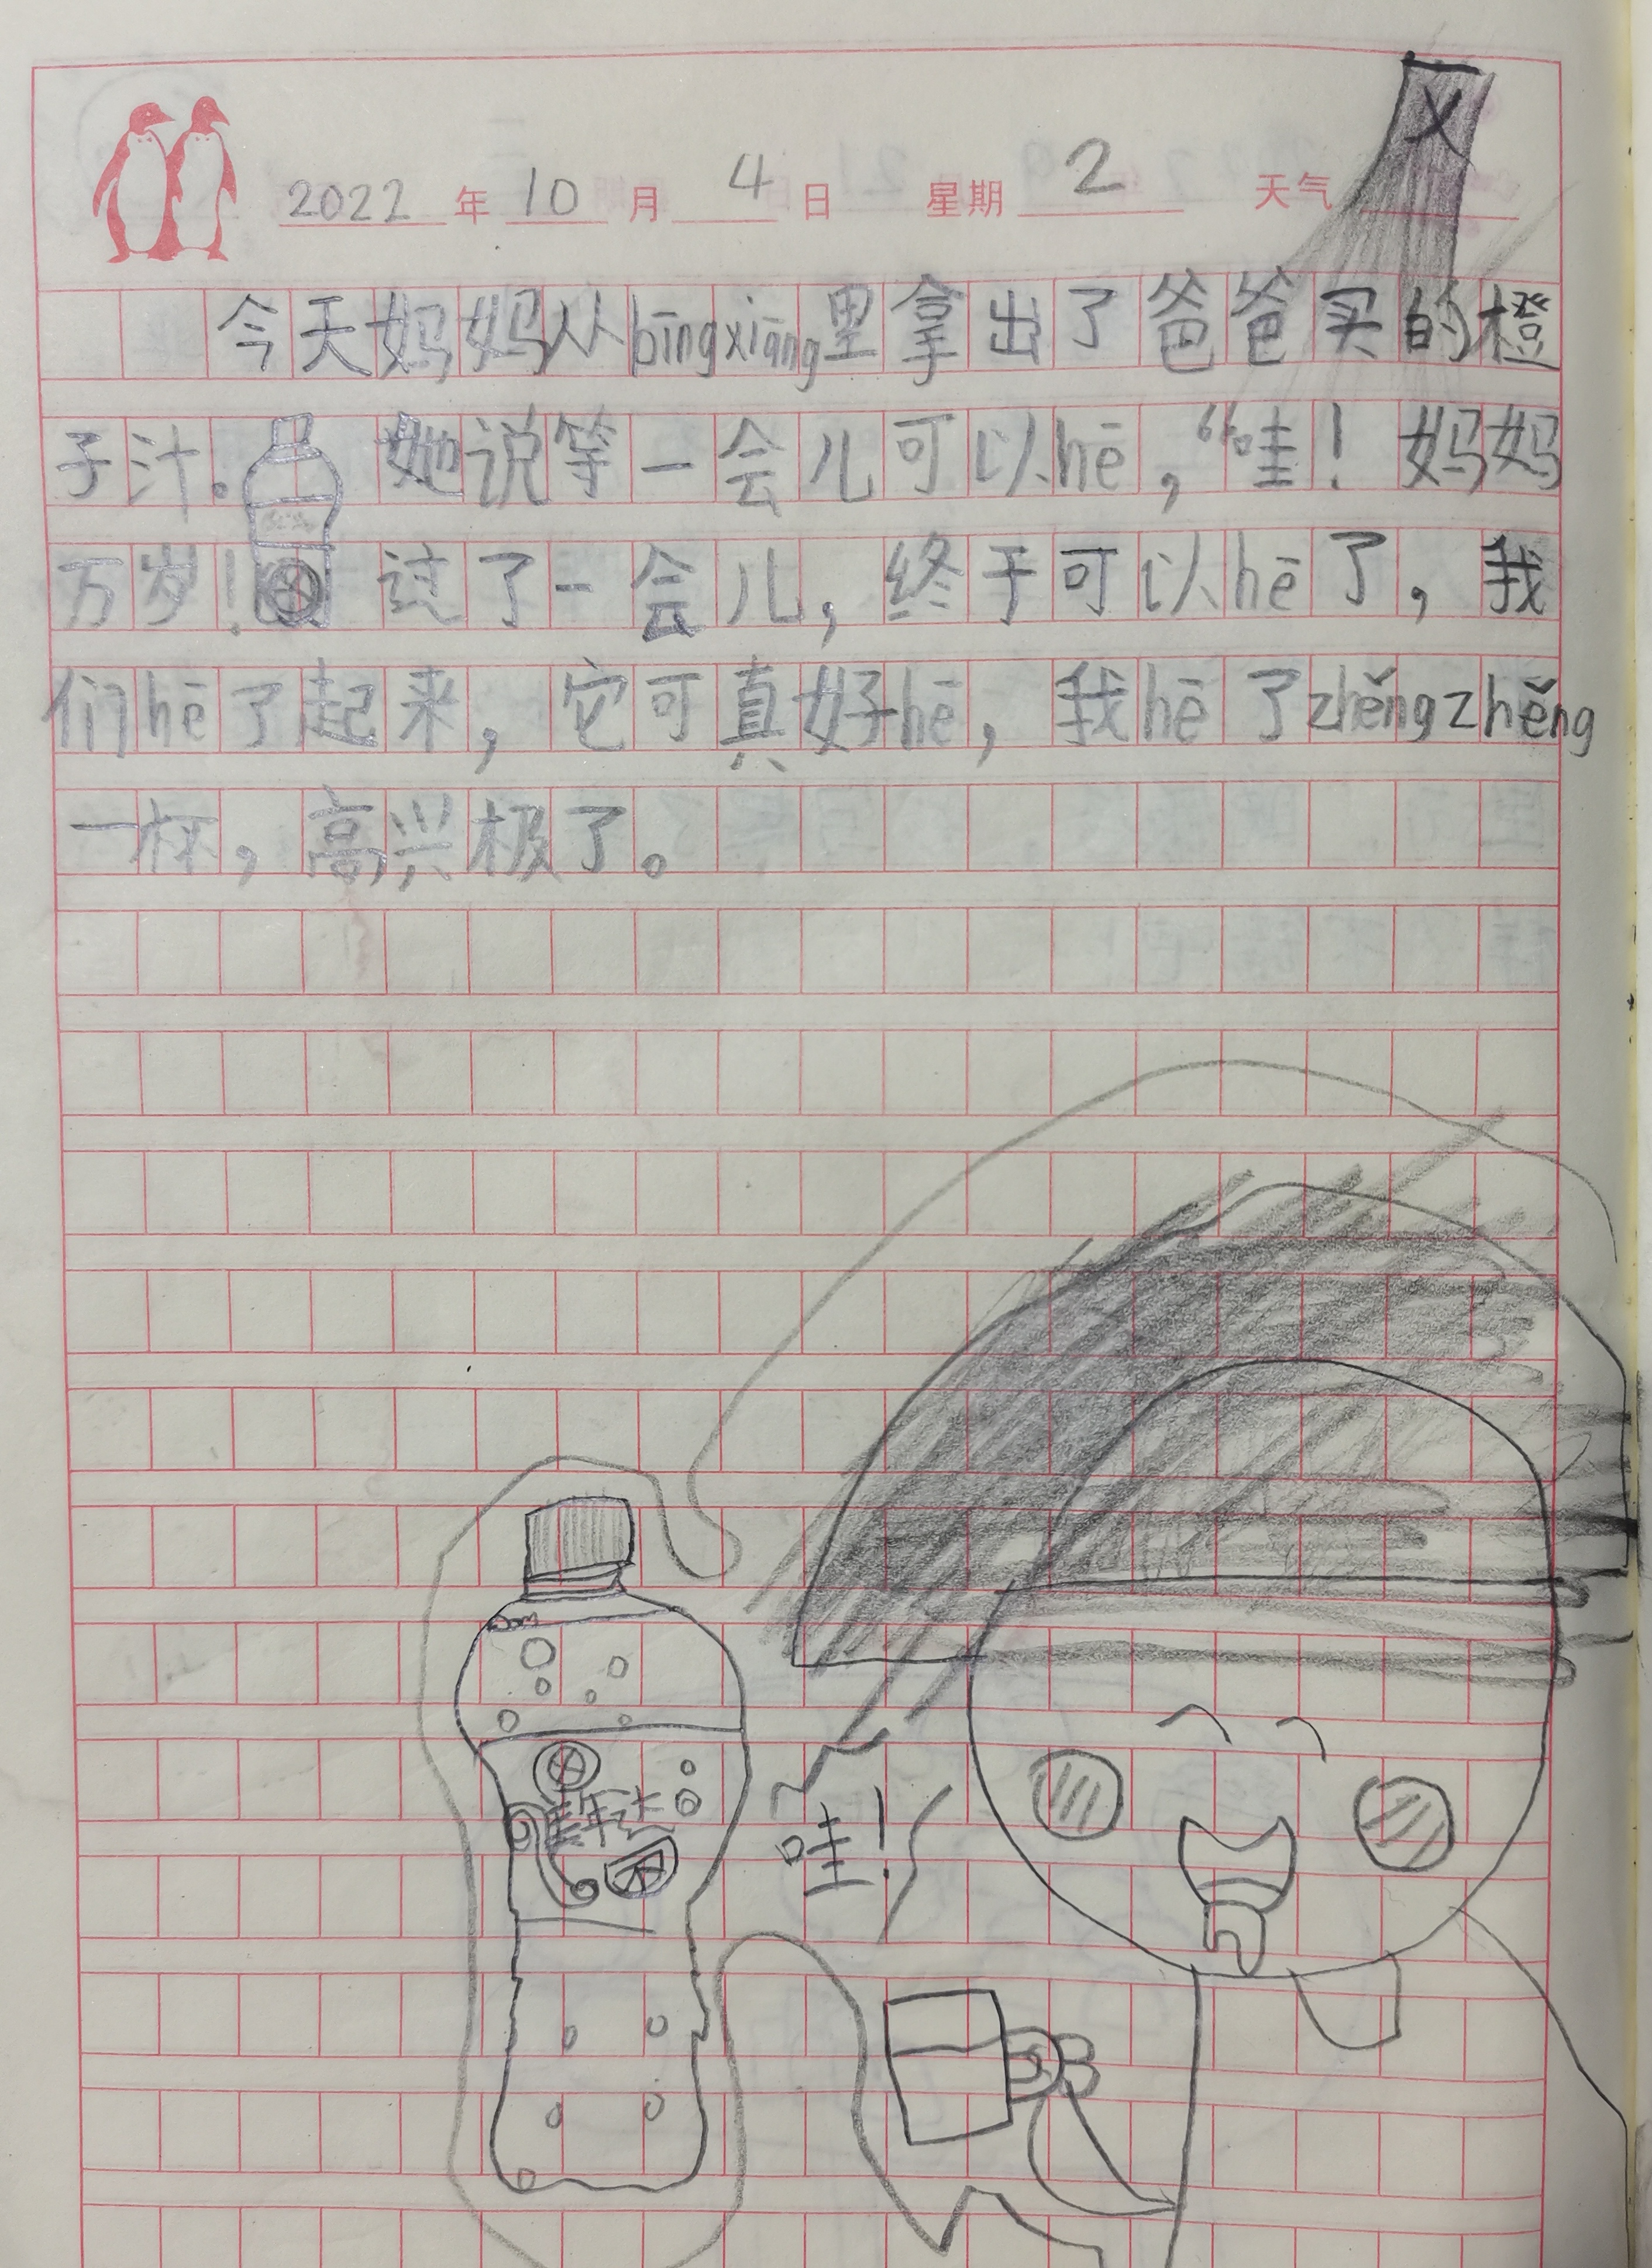 2022年10月4日 星期2 天气
今天妈妈从bīngxiāng里拿出了爸爸买的橙
子汁。她说等一会儿可以hē，“哇！妈妈
万岁！过了一会儿，终于可以hē了，我
们hē了起来，它可真好hē，我hē了zhěngzhěng
一杯，高兴极了。
美年达
哇！